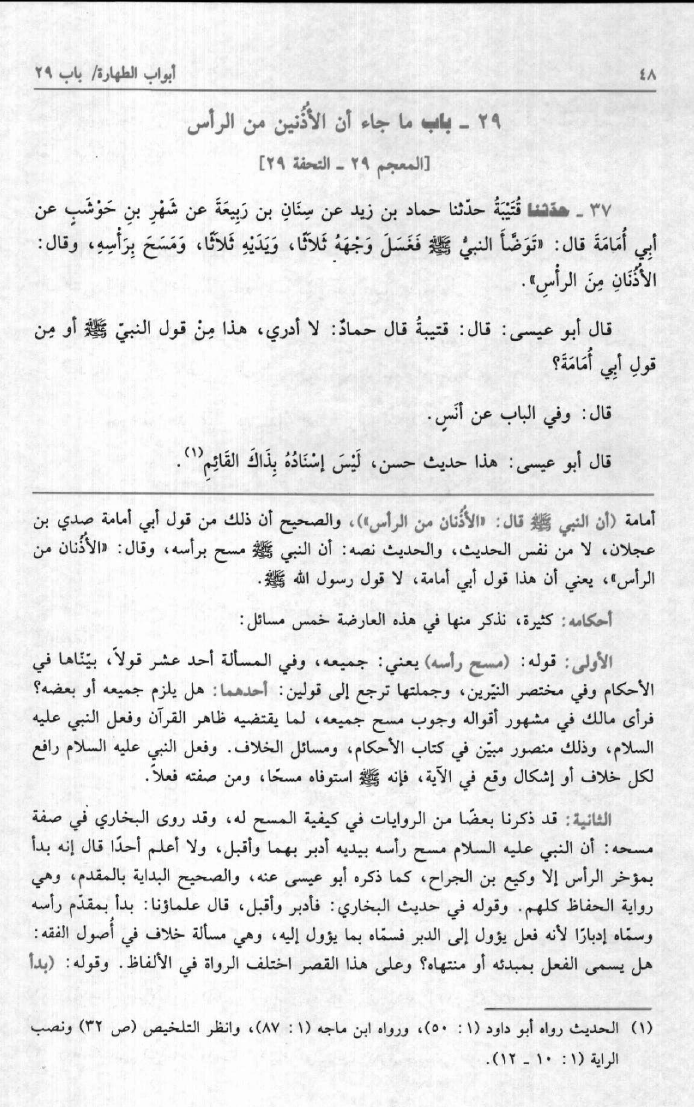 ٤٨ أبواب الطهارة/ باب ٢٩
٢٩ - باب ما جاء أن الأُذُنين من الرأس
[المعجم ٢٩ - التحفة ٢٩]
٣٧ - حدّثنا قُتَيْبَةُ حدّثنا حماد بن زيد عن سِنَانِ بن رَبِيعَةَ عن شَهْرِ بنِ حَوْشَبٍ عن
أبِي أُمَامَةَ قال: «تَوَضَّأَ النبيُّ ﷺ فَغَسَلَ وَجْهَهُ ثَلاَثًا، وَيَدَيْهِ ثَلاَثًا، وَمَسَحَ بِرَأْسِهِ، وقال:
الأُذُنَانِ مِنَ الرأْسِ».
قال أبو عيسى: قال: قتيبةُ قال حمادٌ: لا أدري، هذا مِنْ قول النبيّ ﷺ أو مِن
قولِ أبِي أُمَامَةَ؟
قال: وفي الباب عن أنَسٍ.
قال أبو عيسى: هذا حديث حسن، لَيْسَ إسْنَادُهُ بِذَاكَ القَائِمِ(١).
أمامة (أن النبي ﷺ قال: «الأُذُنان من الرأس»)، والصحيح أن ذلك من قول أبي أمامة صدي بن
عجلان، لا من نفس الحديث، والحديث نصه: أن النبي ﷺ مسح برأسه، وقال: «الأُذُنان من
الرأس»، يعني أن هذا قول أبي أمامة، لا قول رسول الله ﷺ.
أحكامه: كثيرة، نذكر منها في هذه العارضة خمس مسائل:
الأولى: قوله: (مسح رأسه) يعني: جميعه، وفي المسألة أحد عشر قولاً، بيّنّاها في
الأحكام وفي مختصر النيّرين، وجملتها ترجع إلى قولين: أحدهما: هل يلزم جميعه أو بعضه؟
فرأى مالك في مشهور أقواله وجوب مسح جميعه، لما يقتضيه ظاهر القرآن وفعل النبي عليه
السلام، وذلك منصور مبيّن في كتاب الأحكام، ومسائل الخلاف. وفعل النبي عليه السلام رافع
لكل خلاف أو إشكال وقع في الآية، فإنه ﷺ استوفاه مسحًا، ومن صفته فعلاً.
الثانية: قد ذكرنا بعضًا من الروايات في كيفية المسح له، وقد روى البخاري في صفة
مسحه: أن النبي عليه السلام مسح رأسه بيديه أدبر بهما وأقبل، ولا أعلم أحدًا قال إنه بدأ
بمؤخر الرأس إلا وكيع بن الجراح، كما ذكره أبو عيسى عنه، والصحيح البداية بالمقدم، وهي
رواية الحفاظ كلهم. وقوله في حديث البخاري: فأدبر وأقبل، قال علماؤنا: بدأ بمقدّم رأسه
وسمّاه إدبارًا لأنه فعل يؤول إلى الدبر فسمّاه بما يؤول إليه، وهي مسألة خلاف في أُصول الفقه:
هل يسمى الفعل بمبدئه أو منتهاه؟ وعلى هذا القصر اختلف الرواة في الألفاظ. وقوله: (بدأ
(١) الحديث رواه أبو داود (١: ٥٠)، ورواه ابن ماجه (١: ٨٧)، وانظر التلخيص (ص ٣٢) ونصب
الراية (١: ١٠ - ١٢).